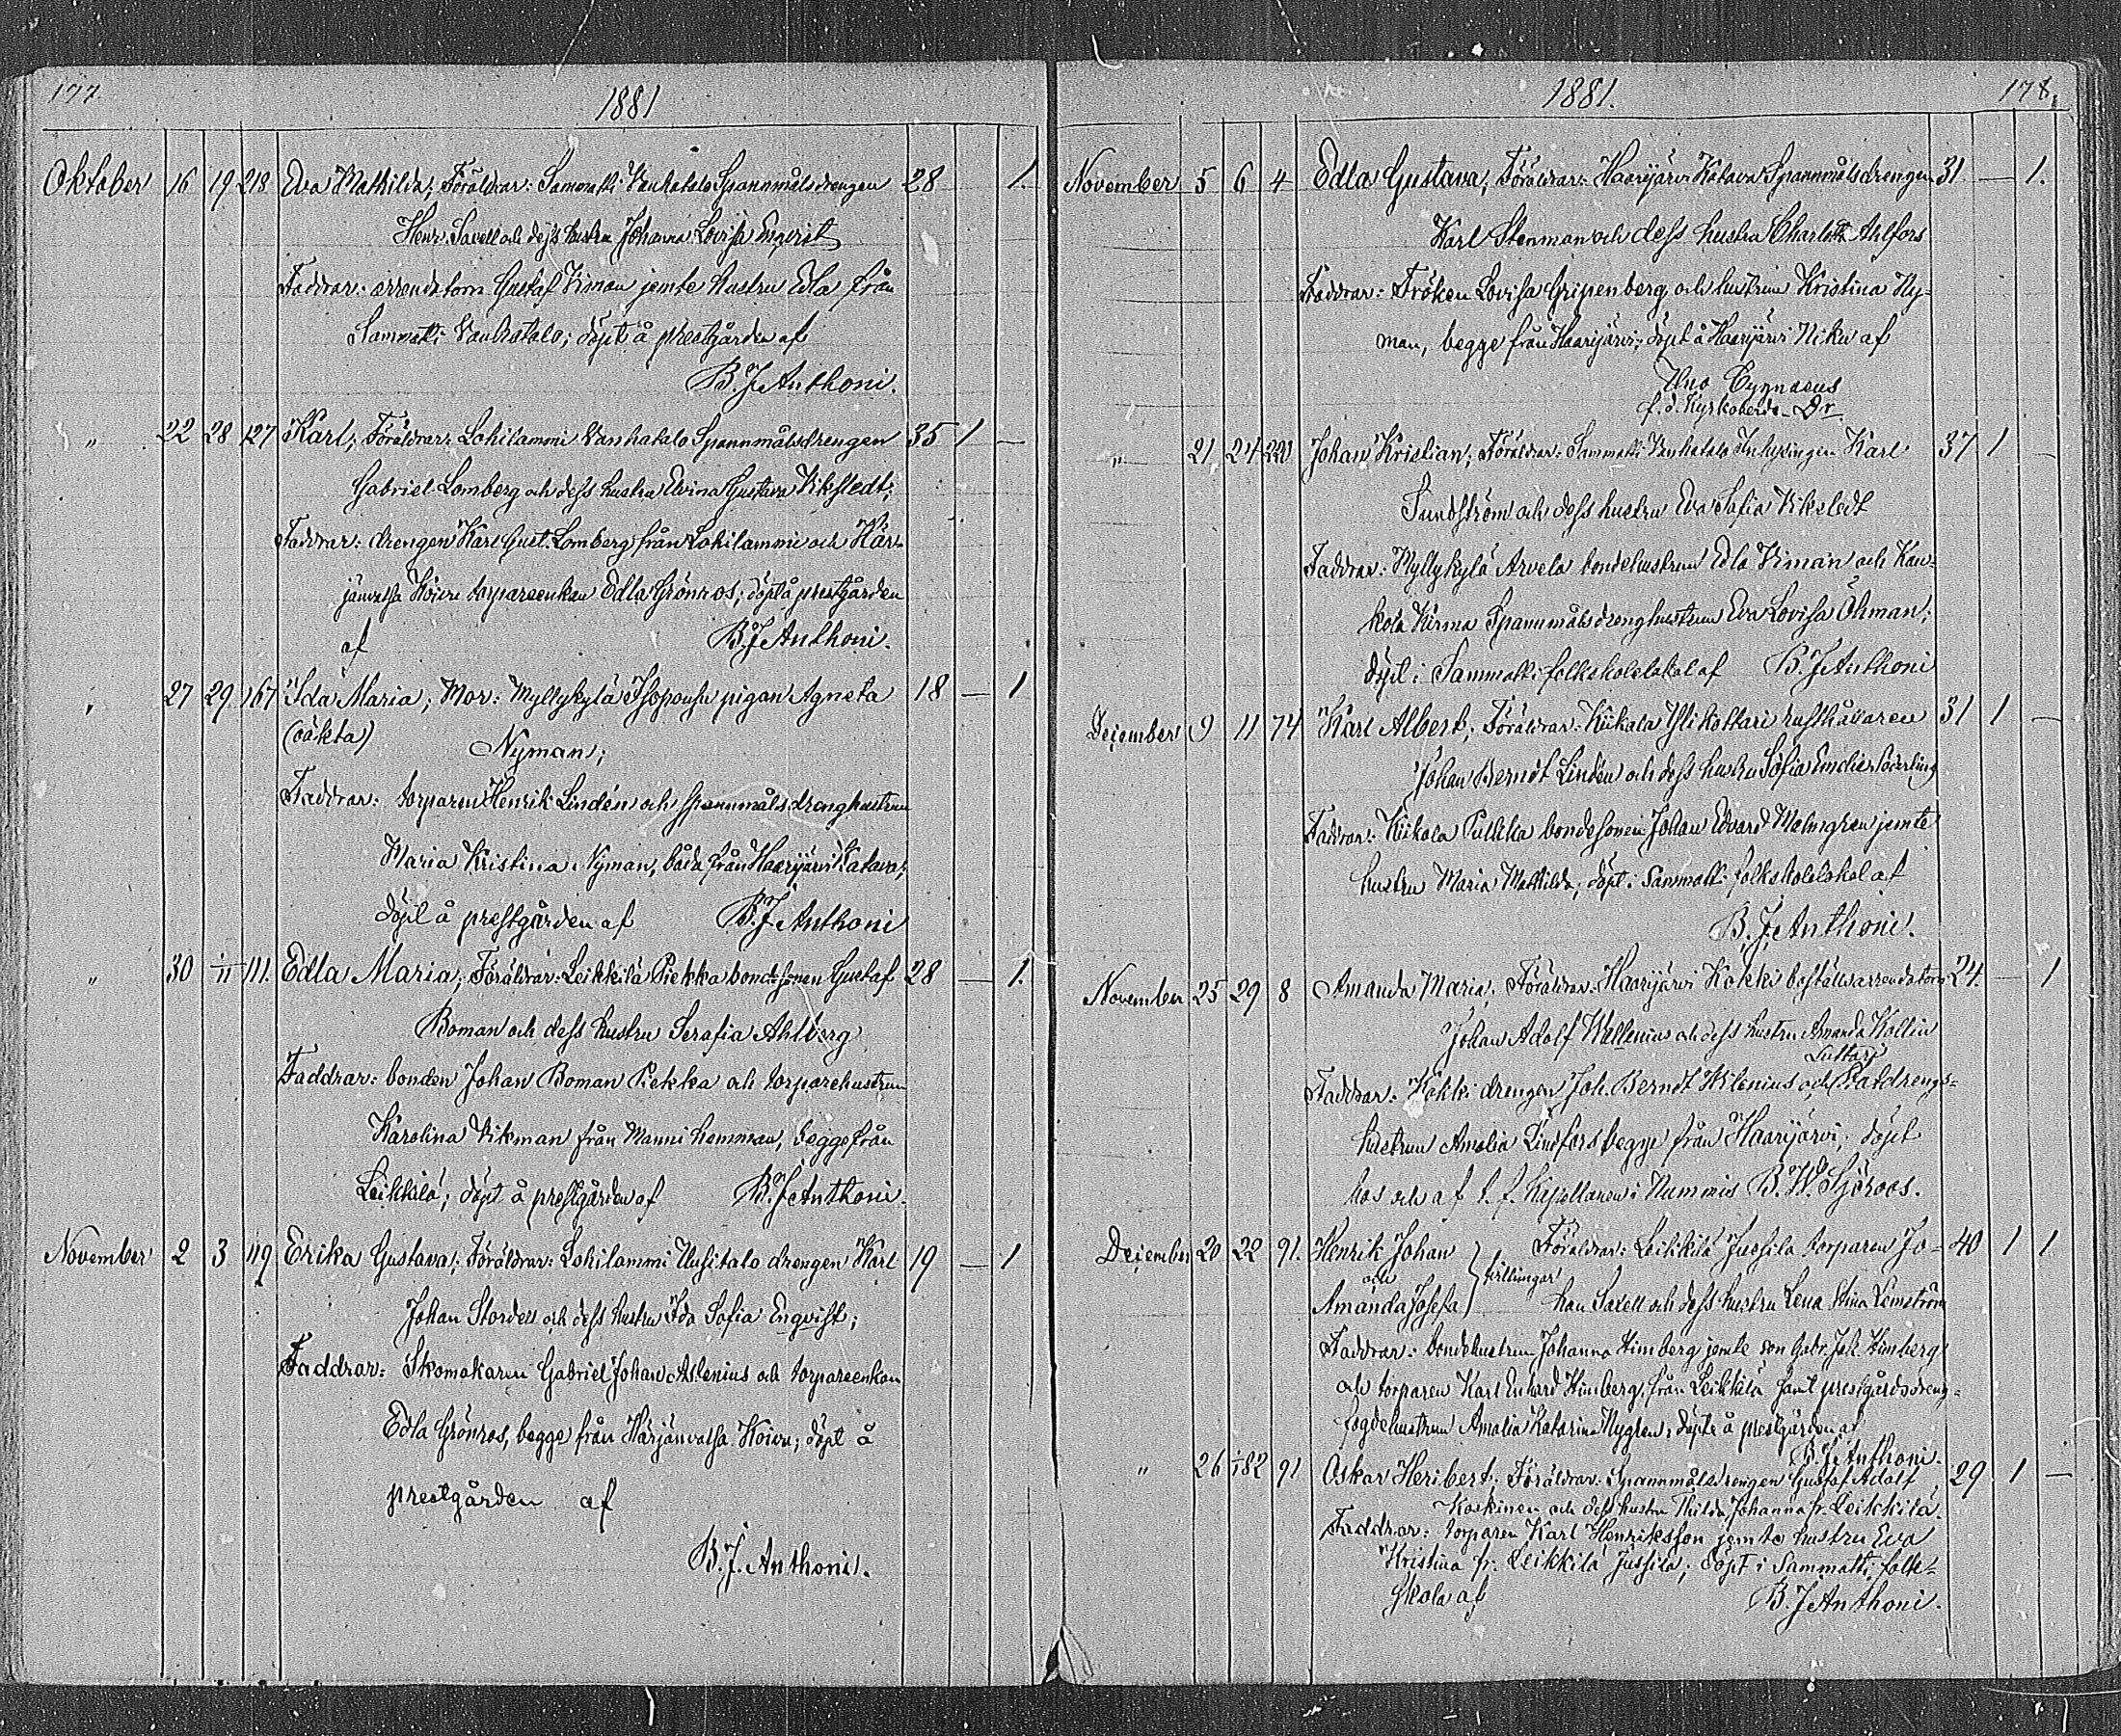 177.
1881
Oktober 16 19 218 Eva Mathilda; Föräldrar: Sammatti Vanhatalo Spannmålsdrengen 28 1.
Henr. Savell och dess hustru Johanna Lovisa Enqvist
Faddrar: arrendatorn Gustaf Viman jemte hustru Edla från
Sammatti Vanhatalo; döpt å prestgården af
B. J. Anthoni.
" 22 28 127 Karl; Föräldrar: Lohilammi Vanhatalo Spannmålsdrengen 35 1 —
Gabriel Lomberg och dess hustru Elvina Gustava Vikstedt;
Faddrar: drengen Karl Gust. Lomberg från Lohilammi och Här-
jänvatsa Koivu torpareenkan Edla Grönros; döpt å prestgården
af B. J. Anthoni.
" 27 29 167 Ida Maria; Mor: Myllykylä pigan Agneta 18 — 1
(oäkta) Nyman;
Faddrar: torparen Henrik Lindén och Spannmålsdrenghustrun
Maria Kristina Nyman, båda från Haarijärvi Katava;
döpt å prestgården af B. J. Anthoni
" 30 1/11 111. Edla Maria; Föräldrar: Leikkilä Piekka bondesonen Gustaf 28 — 1.
Boman och dess hustru Serafia Ahlberg
Faddrar: bonden Johan Boman Piekka och torparehustrun
Karolina Vikman från Manni hemman, begge från
Leikkilä; döpt å prestgården af B. J. Anthoni.
November 2 3 119 Erika Gustava; Föräldrar: Lohilammi Uusitalo drengen Karl 19 — 1
Johan Stordell och dess hustru Ida Sofia Enqvist;
Faddrar: Skomakaren Gabriel Johan Aslenius och torpareenkan
Edla Grönros, begge från Härjänvatsa Koivu; döpt å
prestgården af
B. J. Anthoni.
1881.
178.
November 5 6 4 Edla Gustava; Föräldrar: Haarijärvi Katava Spannmålsdrengen 31. — 1.
Karl Stenman och dess hustru Charlotta Ahlfors
Faddrar: Fröken Lovisa Gripenberg och hustrun Kristina Ny-
man, begge från Haarijärvi; döpt å Haarijärvi Niku af
Uno Cygnaeus
f. d. Kyrkoherde. Dr.
" 21 24 220 Johan Kristian; Föräldrar: Sammatti Vanhatalo Inhysingen Karl 37 1 —
Sundström och dess hustru Eva Sofia Vikstedt
Faddrar: Myllykylä Arvela bondehustrun Edla Viman och Kau-
kola Kirma Spannmålsdrenghustrun Eva Lovisa Öhman;
döpt i Sammatti folkskolelokal af B. J. Anthoni
December 9 11 74 Karl Albert; Föräldrar: Kiikala Ylikottari rusthållaren 31 1 —
Johan Berndt Lindén och dess hustru Sofia Emelie Söderling
Faddrar: Kiikala Pulkka bondesonen Johan Edvard Malmgren jemte
hustru Maria Mathilda; döpt i Sammatti folkskolelokal af
B. J. Anthoni.
November 25 29 8 Amanda Maria; Föräldrar: Haarijärvi Kokki boställsarrendatorn 24. — 1
Johan Adolf Wallenius och dess hustru Amanda Kollin
Faddrar: Kokki drengen Joh. Berndt Wilenius och Statdrengs-
hustrun Amalia Lindfors begge från Haarijärvi; döpt
hos och af t. f. Kapellanen i Nummis B. W. Sjöroos.
December 20 22 91. Henrik Johan Föräldrar: Leikkilä Jussila torparen Jo- 40 1 1
och } tvillingar
Amanda Josefa han Savell och dess hustru Lena Stina Lemström
Faddrar: bondehustrun Johanna Himberg jemte son Gabr. Joh. Himberg
och torparen Karl Enhard Himberg, från Leikkilä samt prestgårdsdreng-
fogdehustrun Amalia Katarina Nygren; döpte å prestgården af
B. J. Anthoni.
" 26 1/1 82 91 Oskar Heribert; Föräldrar: Spannmålsdrengen Gustaf Adolf 29 1 —
Koskinen och dess hustru Thilda Johanna fr. Leikkilä.
Faddrar: torparen Karl Henriksson jemte hustru Eva
Kristina fr. Leikkilä Jussila; döpt i Sammatti folk-
skola af B. J. Anthoni.